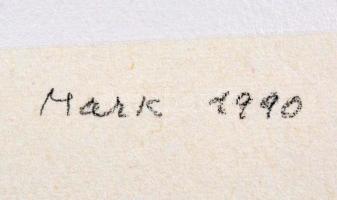 Mark 1990